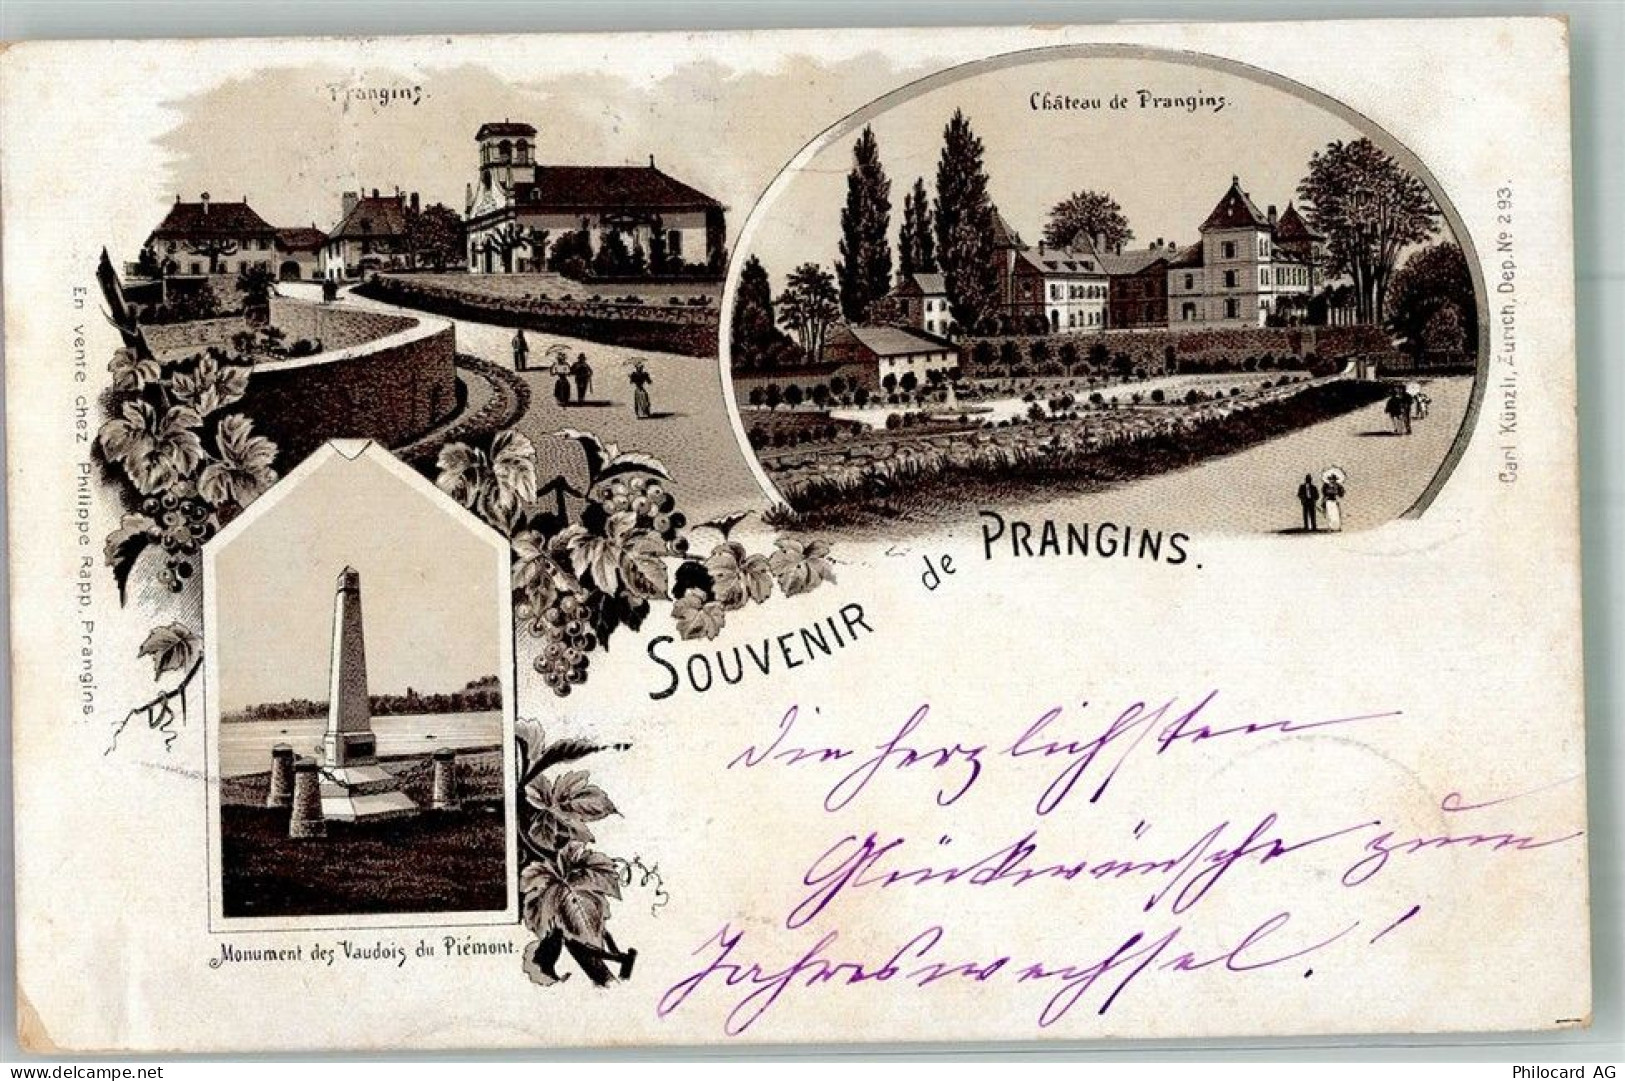 Prangins.
Château de Prangins.
En vente chez Philippe Rapp, Prangins.
Carl Künzli, Zürich, Dep. No 293.
Souvenir de Prangins.
Monument des Vaudois du Piémont.
Die herzlichsten
Glückwünsche zum
Jahreswechsel!
Philocard AG